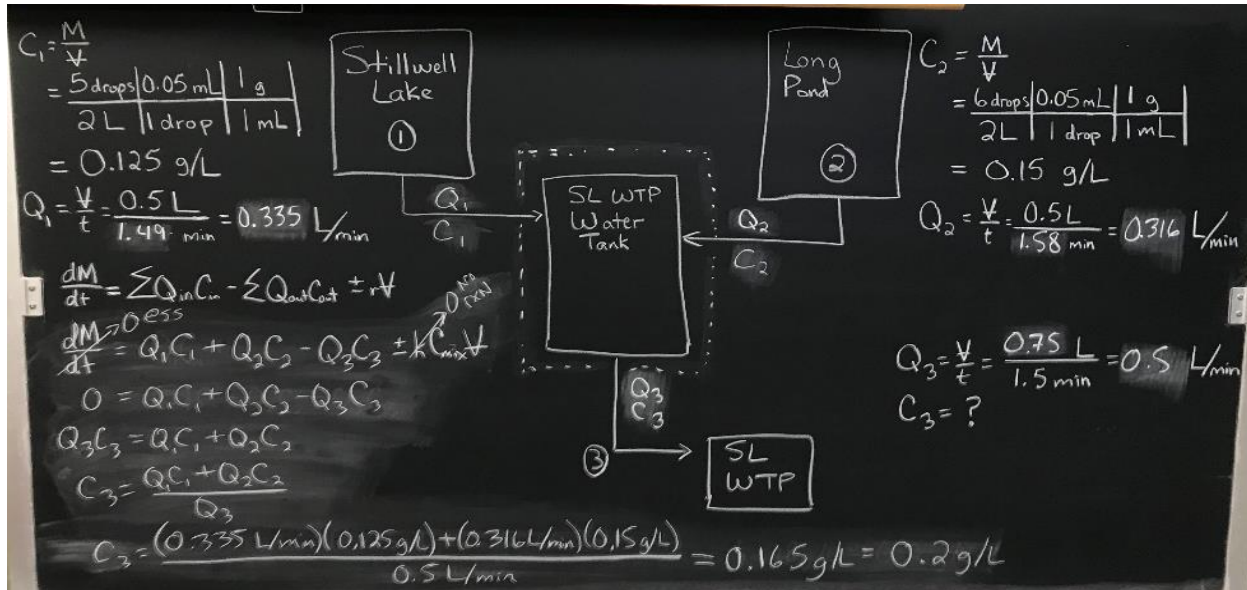 C₁ = M/V
= 5 drops | 0.05 mL | 1 g
2 L | 1 drop | 1 mL
= 0.125 g/L
Q₁ = V/t = 0.5 L / 1.49 min = 0.335 L/min
dM/dt = ΣQinCin - ΣQoutCout ± rV
dM/dt → 0 ess = Q₁C₁ + Q₂C₂ - Q₃C₃ ± kCmixV → 0 NO rxn
0 = Q₁C₁ + Q₂C₂ - Q₃C₃
Q₃C₃ = Q₁C₁ + Q₂C₂
C₃ = Q₁C₁ + Q₂C₂ / Q₃
C₃ = (0.335 L/min)(0.125 g/L) + (0.316 L/min)(0.15 g/L) / 0.5 L/min = 0.165 g/L = 0.2 g/L
Stillwell
Lake
①
Q₁
C₁
SL WTP
Water
Tank
Long
Pond
②
Q₂
C₂
Q₃
C₃
③
SL
WTP
C₂ = M/V
= 6 drops | 0.05 mL | 1 g
2 L | 1 drop | 1 mL
= 0.15 g/L
Q₂ = V/t = 0.5 L / 1.58 min = 0.316 L/min
Q₃ = V/t = 0.75 L / 1.5 min = 0.5 L/min
C₃ = ?